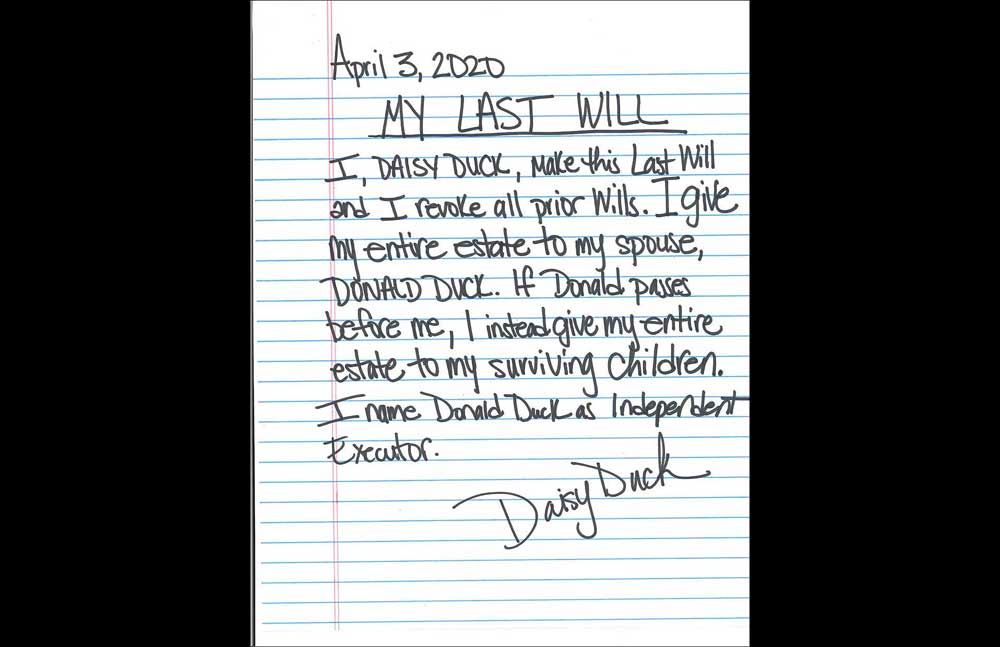 April 3, 2020
MY LAST WILL
I, DAISY DUCK, Make this Last Will
and I revoke all prior Wills. I give
my entire estate to my spouse,
DONALD DUCK. If Donald passes
before me, I instead give my entire
estate to my surviving children.
I name Donald Duck as Independent
Executor.
Daisy Duck